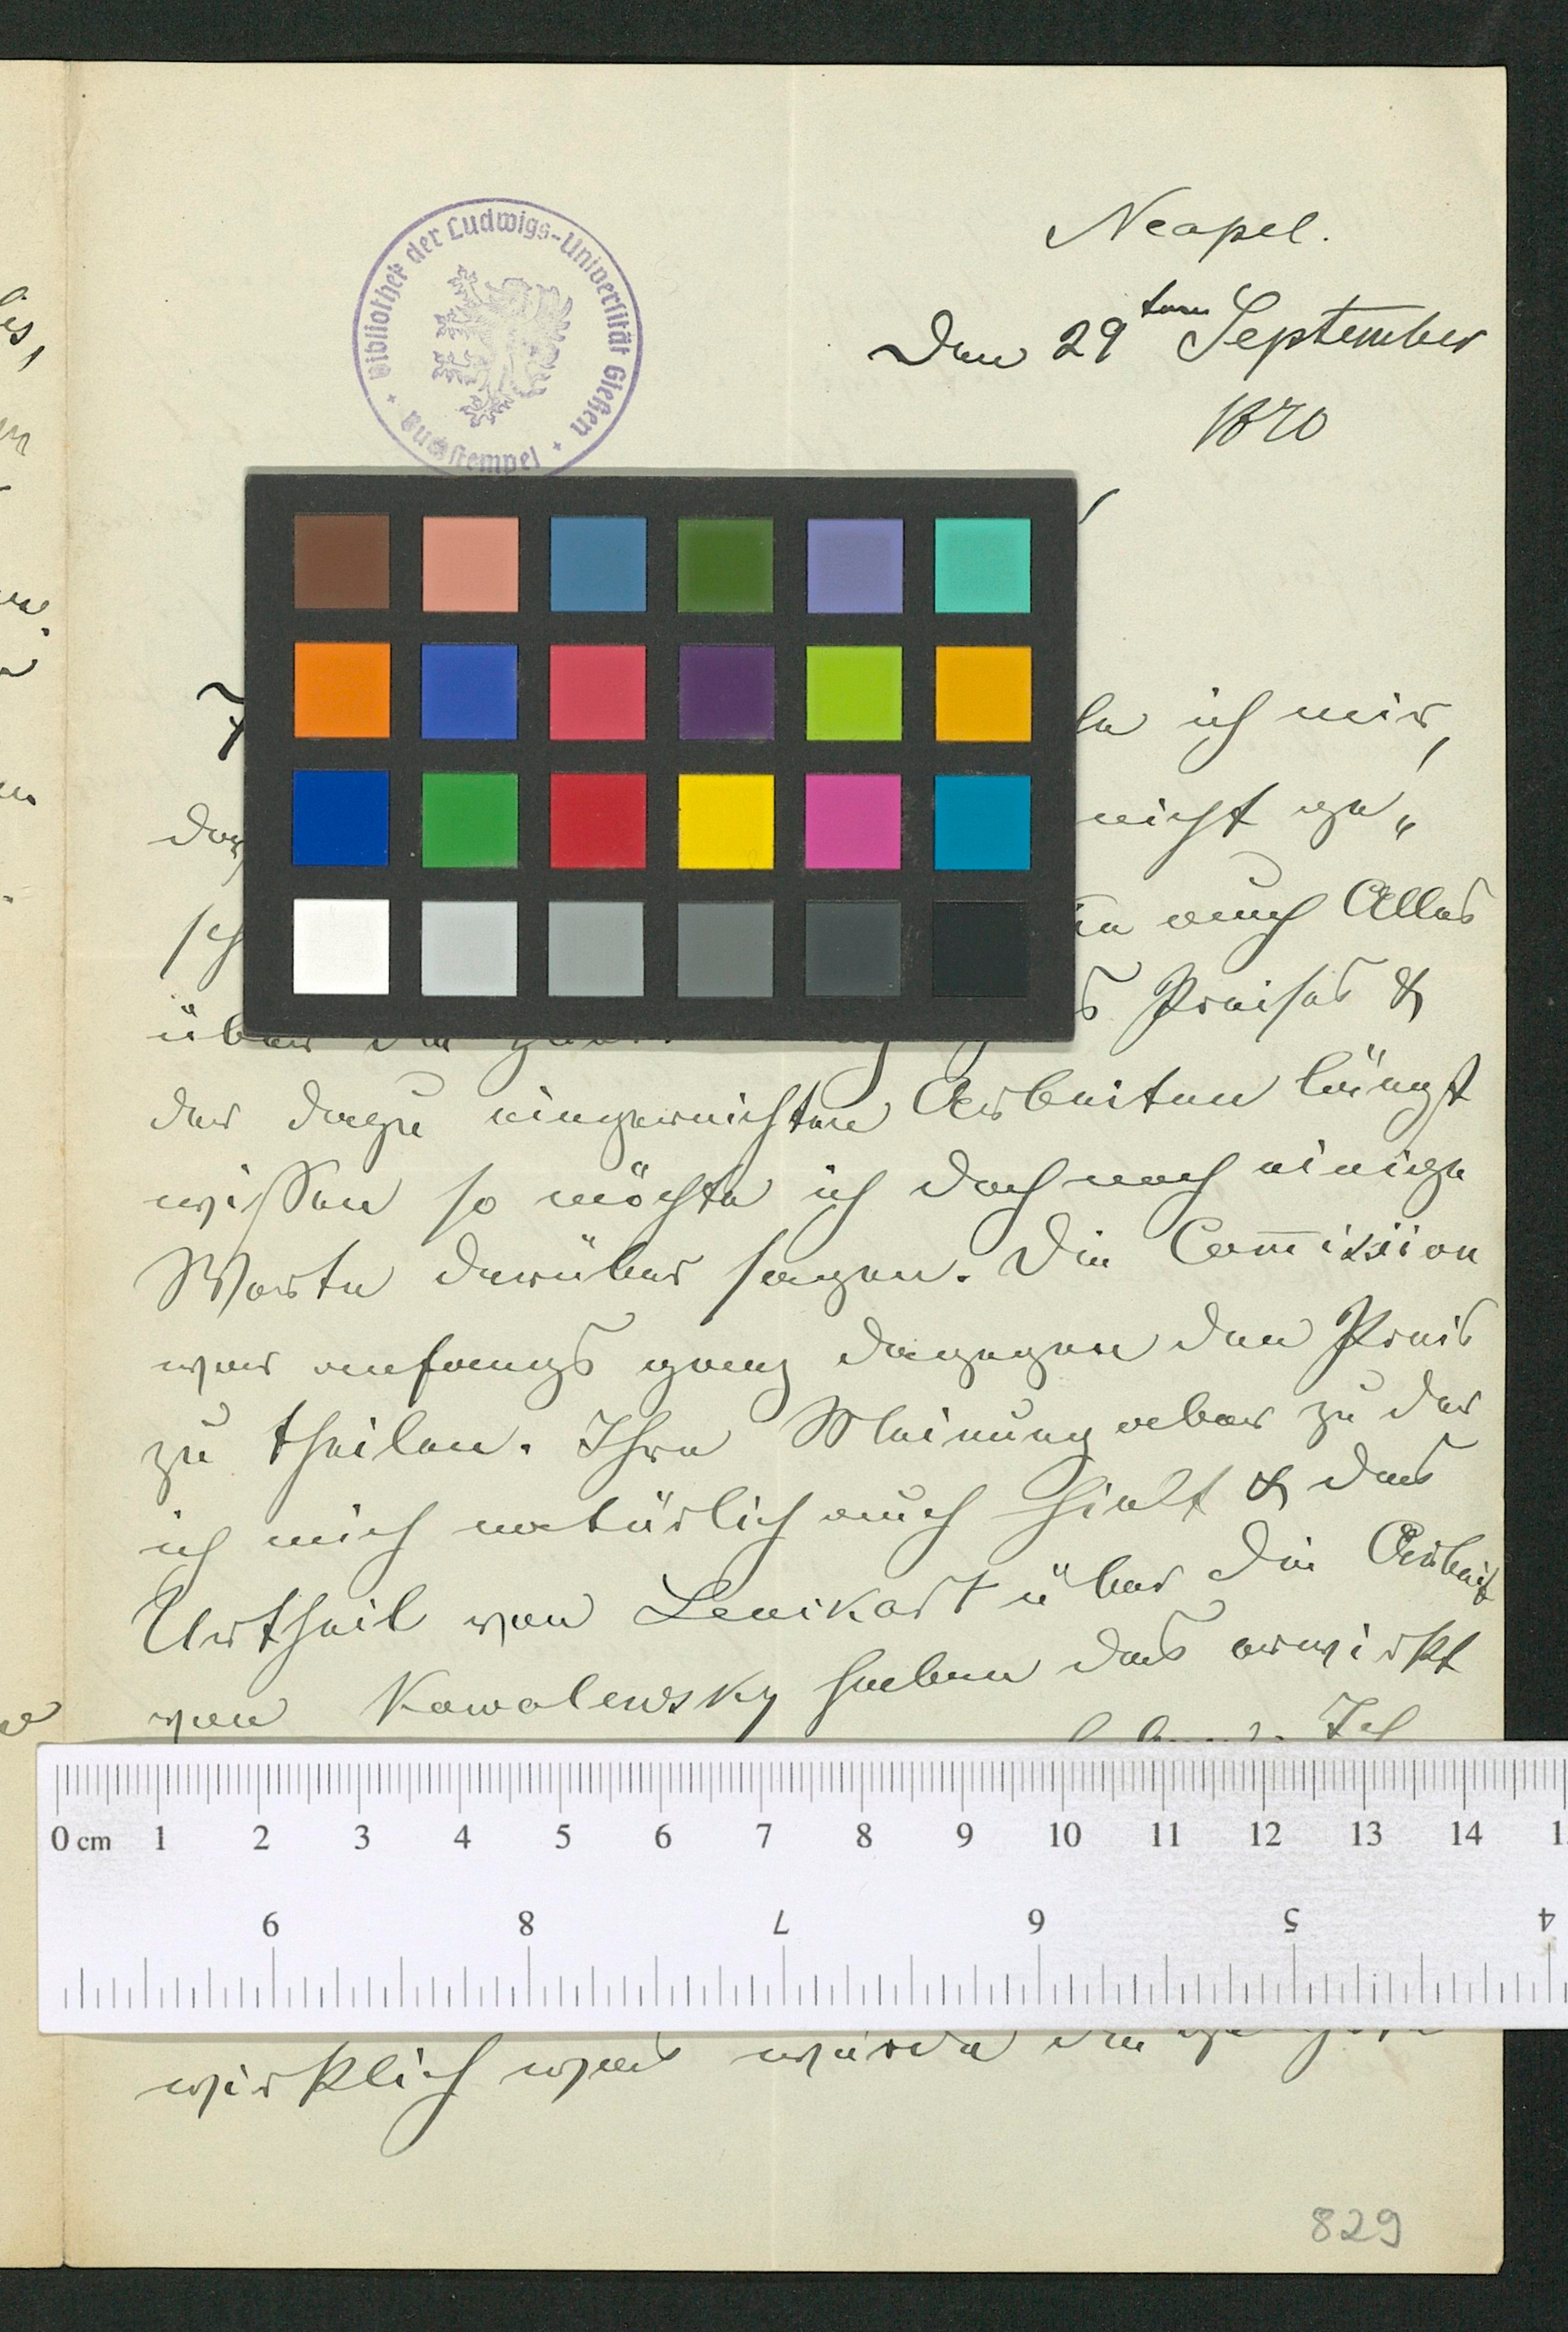 Bibliothek der Ludwigs-Universität Gießen
Buchstempel
Neapel.
Den 29ten September
1870
ich mir,
nicht ge„
auch Alles
über die
Preises &
der dazu eingereichten Arbeiten längst
wissen so möchte ich doch noch einige
Worte darüber sagen. Die Com̅ission
war anfangs ganz dagegen den Preis
zu theilen. Ihre Meinung aber zu der
ich mich natürlich auch hielt & das
Urtheil von Leuikart über die Arbeit
von Kowalewsky haben das erwirkt
Ich
0 cm 1 2 3 4 5 6 7 8 9 10 11 12 13 14 1
4 5 6 7 8 9
wirklich was würde die
829